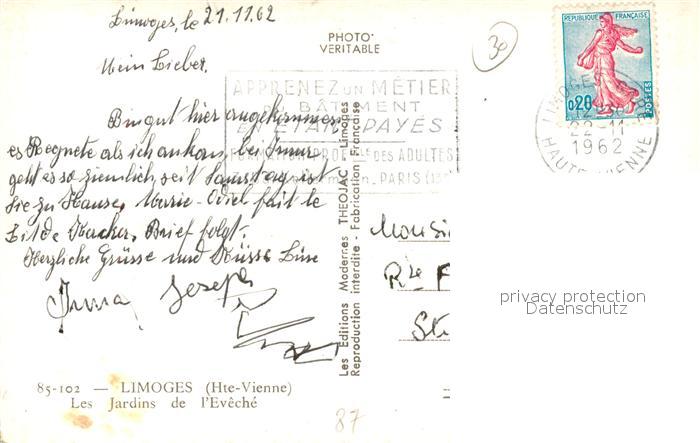 Limoges, le 21.11.62
PHOTO
VERITABLE
30
REPUBLIQUE FRANÇAISE
0,20
POSTES
Mein Lieber,
APPRENEZ UN MÉTIER
BÂTIMENT
EN ÉTANT PAYÉS
DES ADULTES
PARIS
LIMOGES
22-11
1962
HAUTE-VIENNE
Bin gut hier angekommen,
es Regnete als ich ankam, bei Irma
geht es so ziemlich, seit Samstag ist
Sie zu Hause, Marie-Odiel fait le
Brief folgt.
Herzliche Grüsse und Küsse
Irma Joseph
Les Editions Modernes THEOJAC - Limoges
Reproduction interdite - Fabrication Française
Monsi
Rue F
St
privacy protection
Datenschutz
85-102 — LIMOGES (Hte-Vienne)
Les Jardins de l'Evêché
87